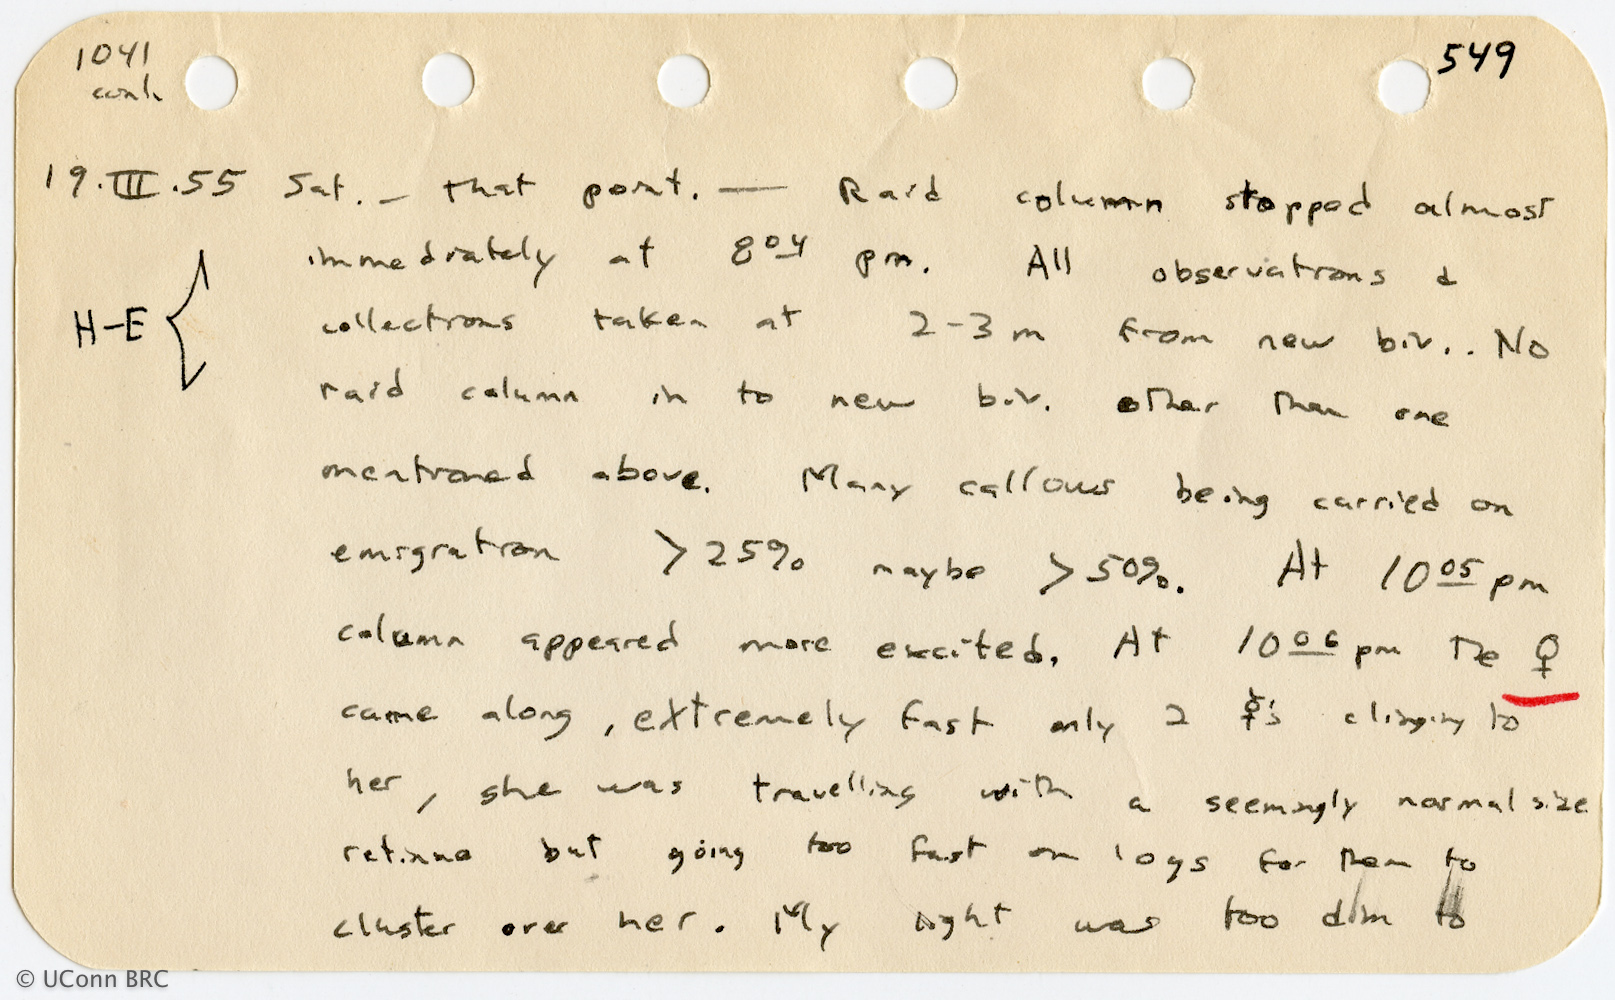 1041 549
cont.
19.III.55 Sat. – that point. — Raid column stopped almost
immediately at 8 04 pm. All observations &
H-E { collections taken at 2-3 m from new biv.. No
raid column in to new biv. other than one
mentioned above. Many callows being carried on
emigration >25% maybe >50%. At 10 05 pm
column appeared more excited. At 10 06 pm the ♀
came along, extremely fast only 2 ☿'s clinging to
her, she was travelling with a seemingly normal size
retinue but going too fast on logs for them to
cluster over her. My light was too dim to
© UConn BRC